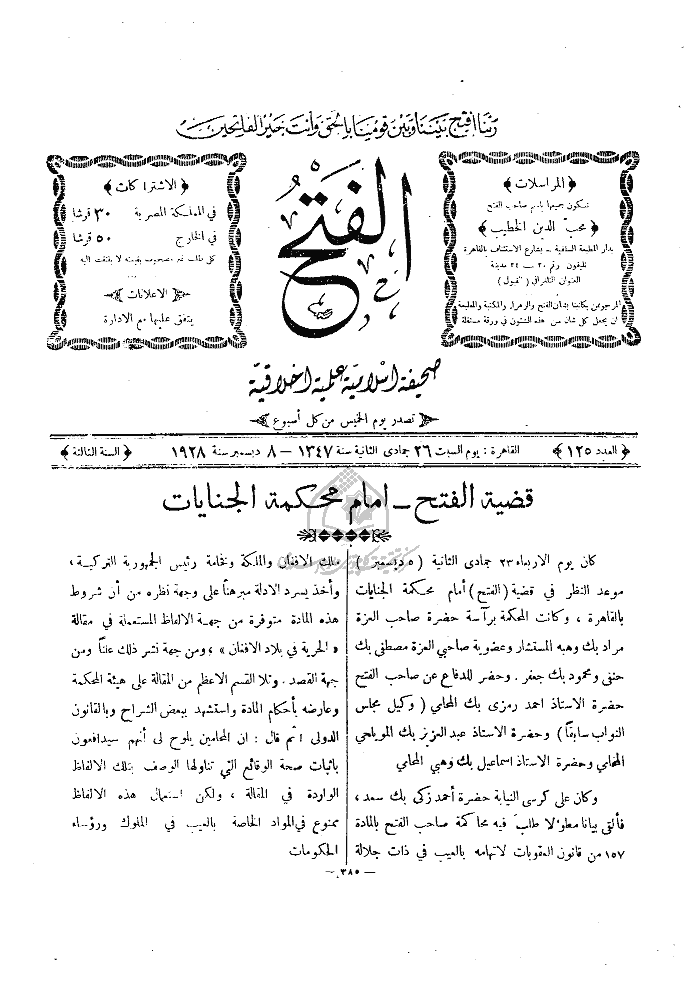 ربنا افتح بيننا وبين قومنا بالحق وأنت خير الفاتحين
﴿ المراسلات ﴾
تكون جميعها باسم صاحب الفتح
﴿ محب الدين الخطيب ﴾
بدار المطبعة السلفية ــ بشارع الاستئناف بالقاهرة
تليفون رقم ٢٠ — ٢٤ مدينة
العنوان التلغرافي ( قبول )
المرجو ممن يكاتبنا بشأن الفتح والزهراء والمكتبة والمطبعة
أن يجعل كل شأن من هذه الشئون في ورقة مستقلة
الفتح
﴿ الاشتراكات ﴾
في المملكة المصرية ٣٠ قرشا
في الخارج ٥٠ قرشا
كل طلب غير مصحوب بقيمته لا يلتفت اليه
الاعلانات
يتفق عليها مع الادارة
صحيفة اسلامية علمية اخلاقية
تصدر يوم الخميس من كل أسبوع
﴿ العدد ١٢٥ ﴾
القاهرة : يوم السبت ٢٦ جمادى الثانية سنة ١٣٤٧ — ٨ ديسمبر سنة ١٩٢٨
﴿ السنة الثالثة ﴾
قضية الفتح ــ امام محكمة الجنايات
كان يوم الاربعاء ٢٣ جمادى الثانية ( ٥ ديسمبر )
موعد النظر في قضية ( الفتح ) أمام محكمة الجنايات
بالقاهرة ، وكانت المحكمة برآسة حضرة صاحب العزة
مراد بك وهبه المستشار وعضوية صاحبي العزة مصطفى بك
حنفى ومحمود بك جعفر . وحضر للدفاع عن صاحب الفتح
حضرة الاستاذ احمد رمزى بك المحامي ( وكيل مجلس
النواب سابقاً ) وحضرة الاستاذ عبد العزيز بك المويلحي
المحامي وحضرة الاستاذ اسماعيل بك وهبي المحامي
وكان على كرسى النيابة حضرة أحمد زكى بك سعد ،
فألقى بيانا مطولا طلب فيه محاكمة صاحب الفتح بالمادة
١٥٧ من قانون العقوبات لاتهامه بالعيب في ذات جلالة
ملك الافغان والملكة وفخامة رئيس الجمهورية التركية ،
وأخذ يسرد الادلة مبرهناً على وجهة نظره من أن شروط
هذه المادة متوفرة من جهة الالفاظ المستعملة في مقالة
« الحرية في بلاد الافغان » ، ومن جهة نشر ذلك علناً ومن
جهة القصد . وتلا القسم الاعظم من المقالة على هيئة المحكمة
وعارضه بأحكام المادة واستشهد ببعض الشراح وبالقانون
الدولى . ثم قال : ان المحامين يلوح لى أنهم سيدافعون
باثبات صحة الوقائع التي تناولها الوصف بتلك الالفاظ
الواردة في المقالة ، ولكن استعمال هذه الالفاظ
ممنوع في المواد الخاصة بالعيب في الملوك ورؤساء
الحكومات
— ٣٨٥ —